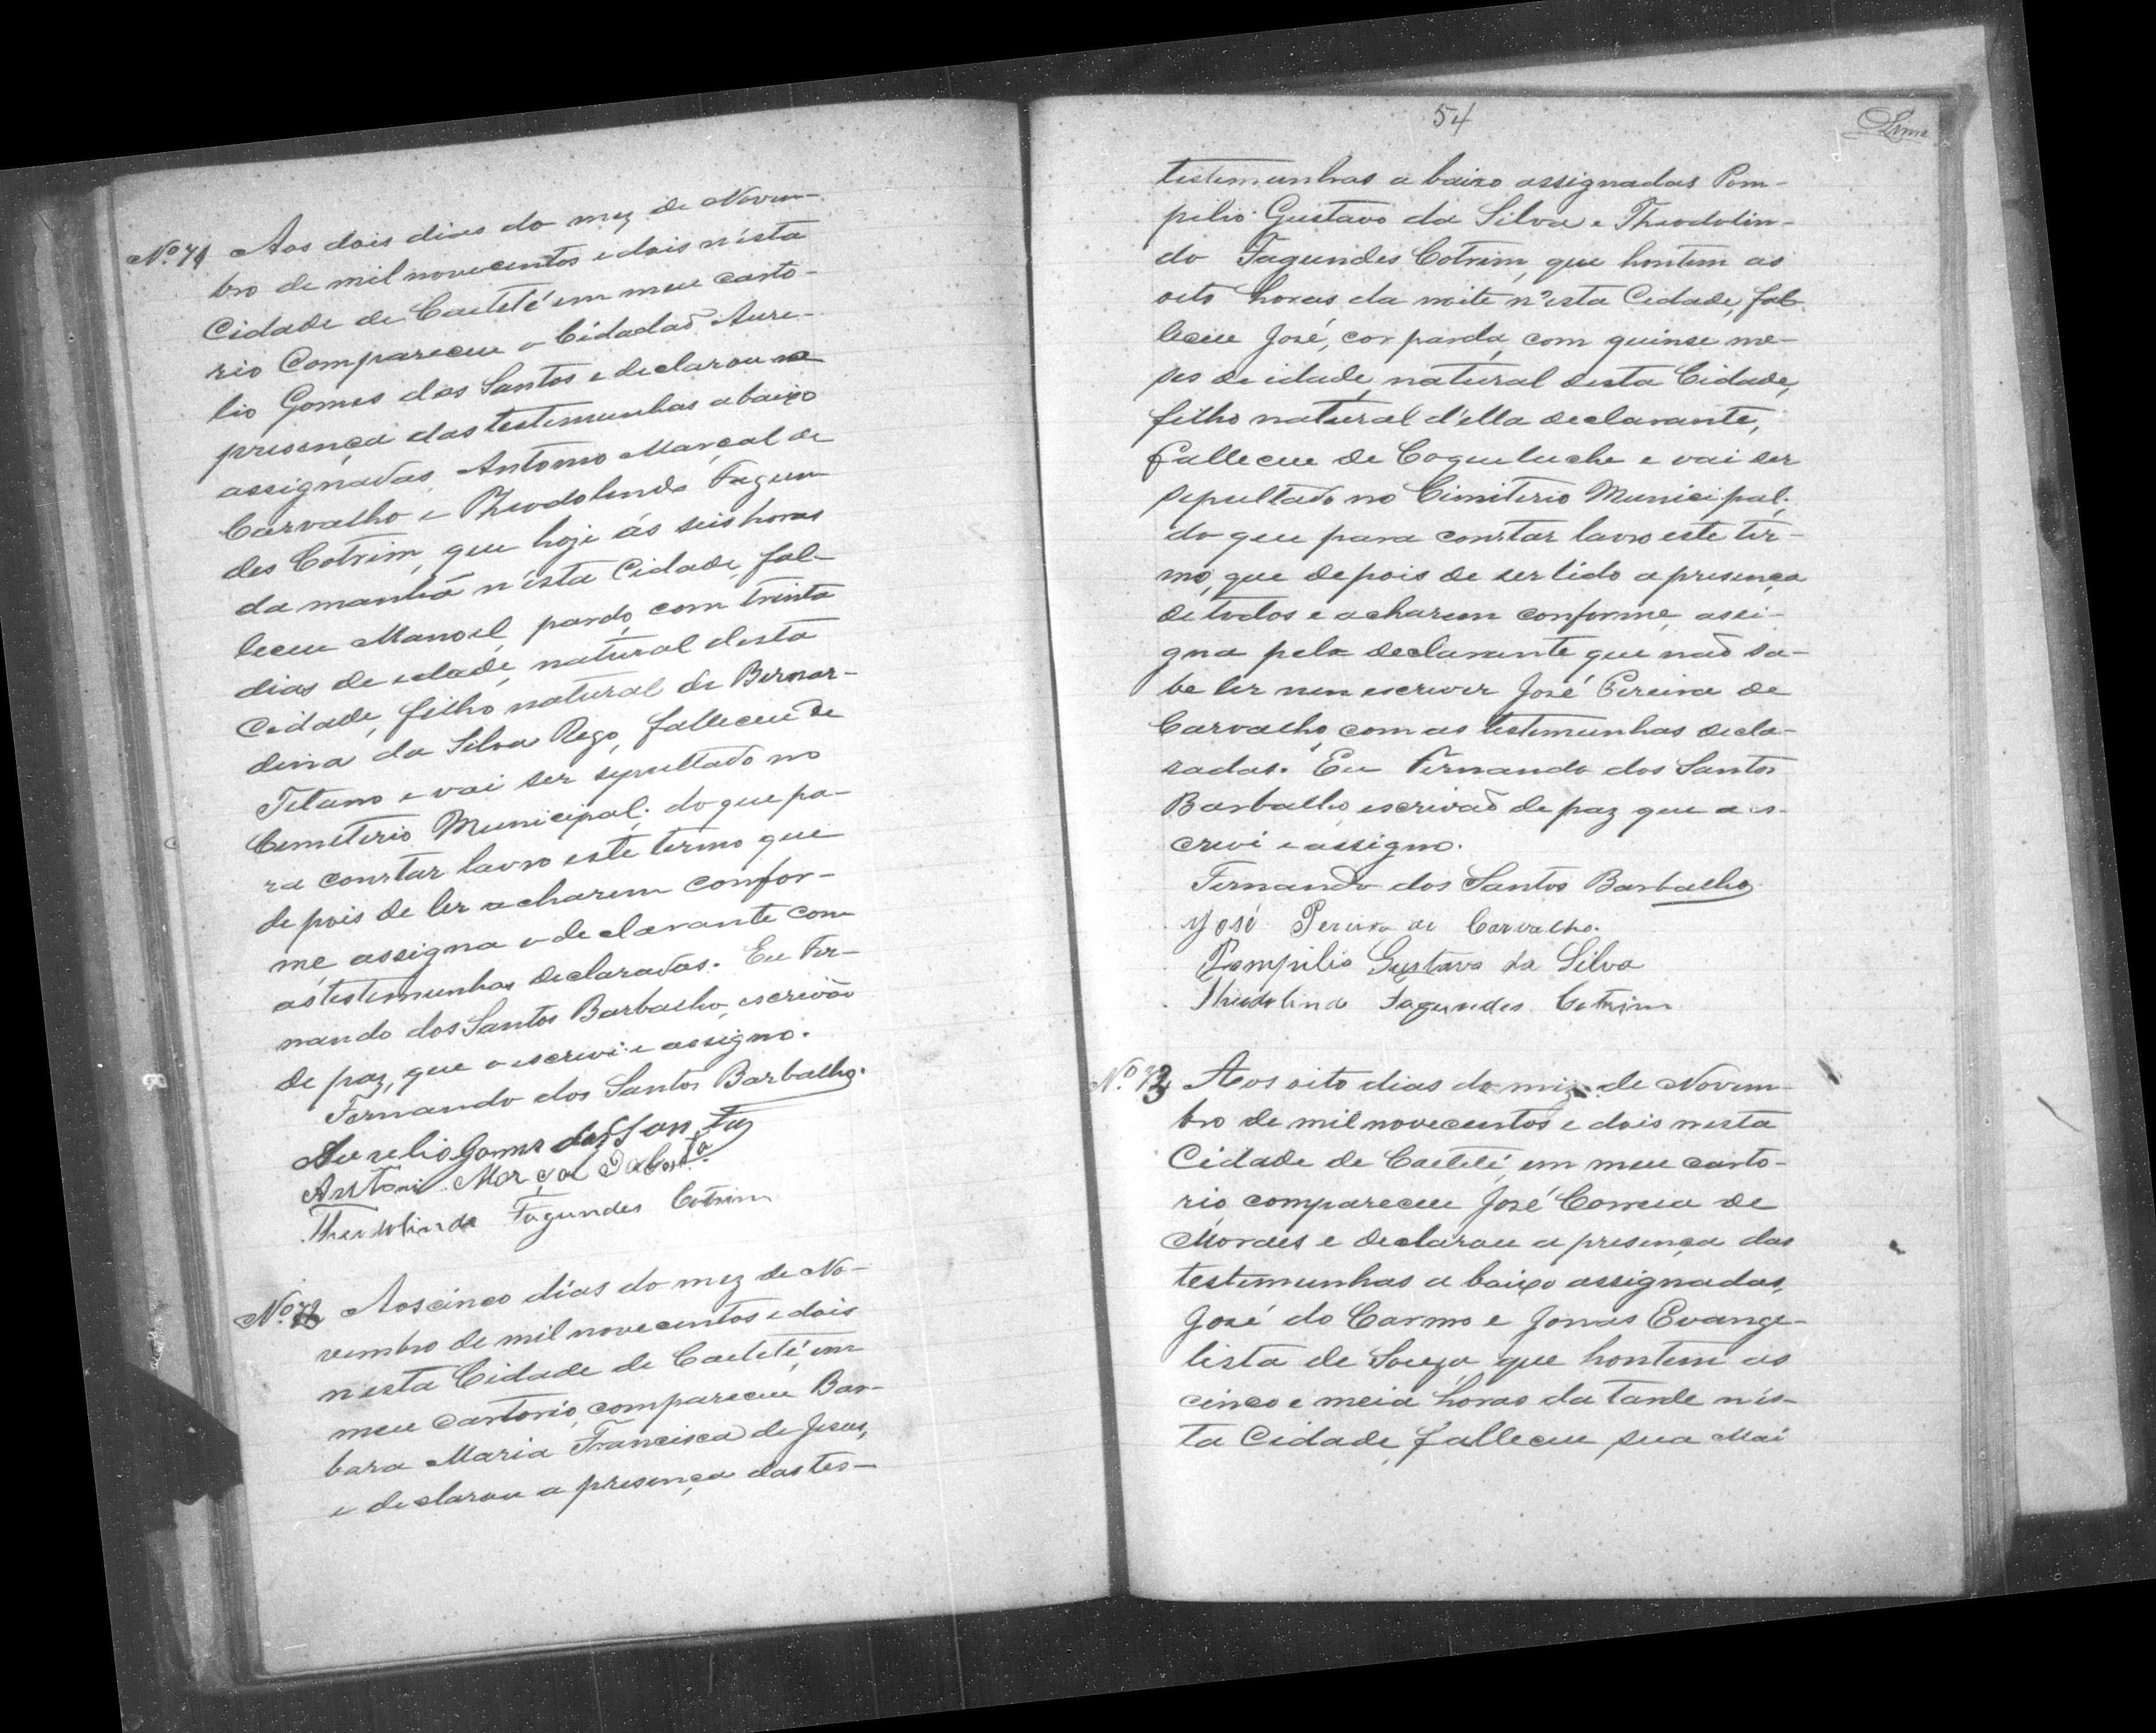 Nº 71 Aos dois dias do mez de Novem-
bro de mil novecentos e dois n'esta
Cidade de Caeteté em meu carto-
rio Compareceu o Cidadaõ Aure-
lio Gomes dos Santos e declarou na
presença das testemunhas abaixo
assignadas, Antonio Marçal de
Carvalho e Theodolindo Fagun
des Cotrim, que hoje ás seis horas
da manhã n'esta Cidade, fal-
leceu Manoel, pardo, com trinta
dias de edade, natural desta
Cidade, filho natural de Bernar-
dina da Silva Rego, falleceu de
Tetano e vai ser sepultado no
Cemeterio Municipal; do que pa-
ra constar lavro este termo que
depois de ler e acharem confor-
me assigna o declarante com
as testemunhas declaradas. Eu Fer-
nando dos Santos Barbalho, escrivão
de paz, que o escrevi e assigno.
Fernando dos Santos Barbalho.
Aurelio Gomes dos Santos
Antonio Marçal
Theodolindo Fagundes Cotrim
Nº 72 Aos cinco dias do mez de No-
vembro de mil novecentos e dois
nesta Cidade de Caeteté, em
meu Cartorio, compareceu Bar-
bara Maria Francisca de Jesus,
e declarou a presença das tes-
54
Lima
testemunhas a baixo assignadas Pom-
pilio Gustavo da Silva e Theodolin-
do Fagundes Cotrim, que hontem as
oito horas da noite n'esta Cidade, fal-
leceu José, cor parda, com quinse me-
ses de idade, natural desta Cidade,
filho natural d'élla declarante,
falleceu de Coqueluche e vai ser
sepultado no Cimiterio Municipal;
do que para constar lavro este ter-
mo, que depois de ser lido a presença
de todos e acharem conforme, assi-
gna pela declarante que naõ sa-
be ler nem escrever José Pereira de
Carvalho, com as testemunhas decla-
radas. Eu Fernando dos Santos
Barbalho, escrivaõ de paz que a es-
crevi e assigno.
Fernando dos Santos Barbalho
José Pereira de Carvalho.
Pompilio Gustavo da Silva
Theodolindo Fagundes Cotrim
Nº 73 Aos oito dias do mez de Novem
bro de mil novecentos e dois nesta
Cidade de Caeteté, em meu carto-
rio, compareceu José Correia de
Moraes e declarou a presença das
testemunhas a baixo assignadas,
José do Carmo e Jonas Evange-
lista de Souza, que hontem as
cinco e meia horas da tarde n'es-
ta Cidade, falleceu sua Mai